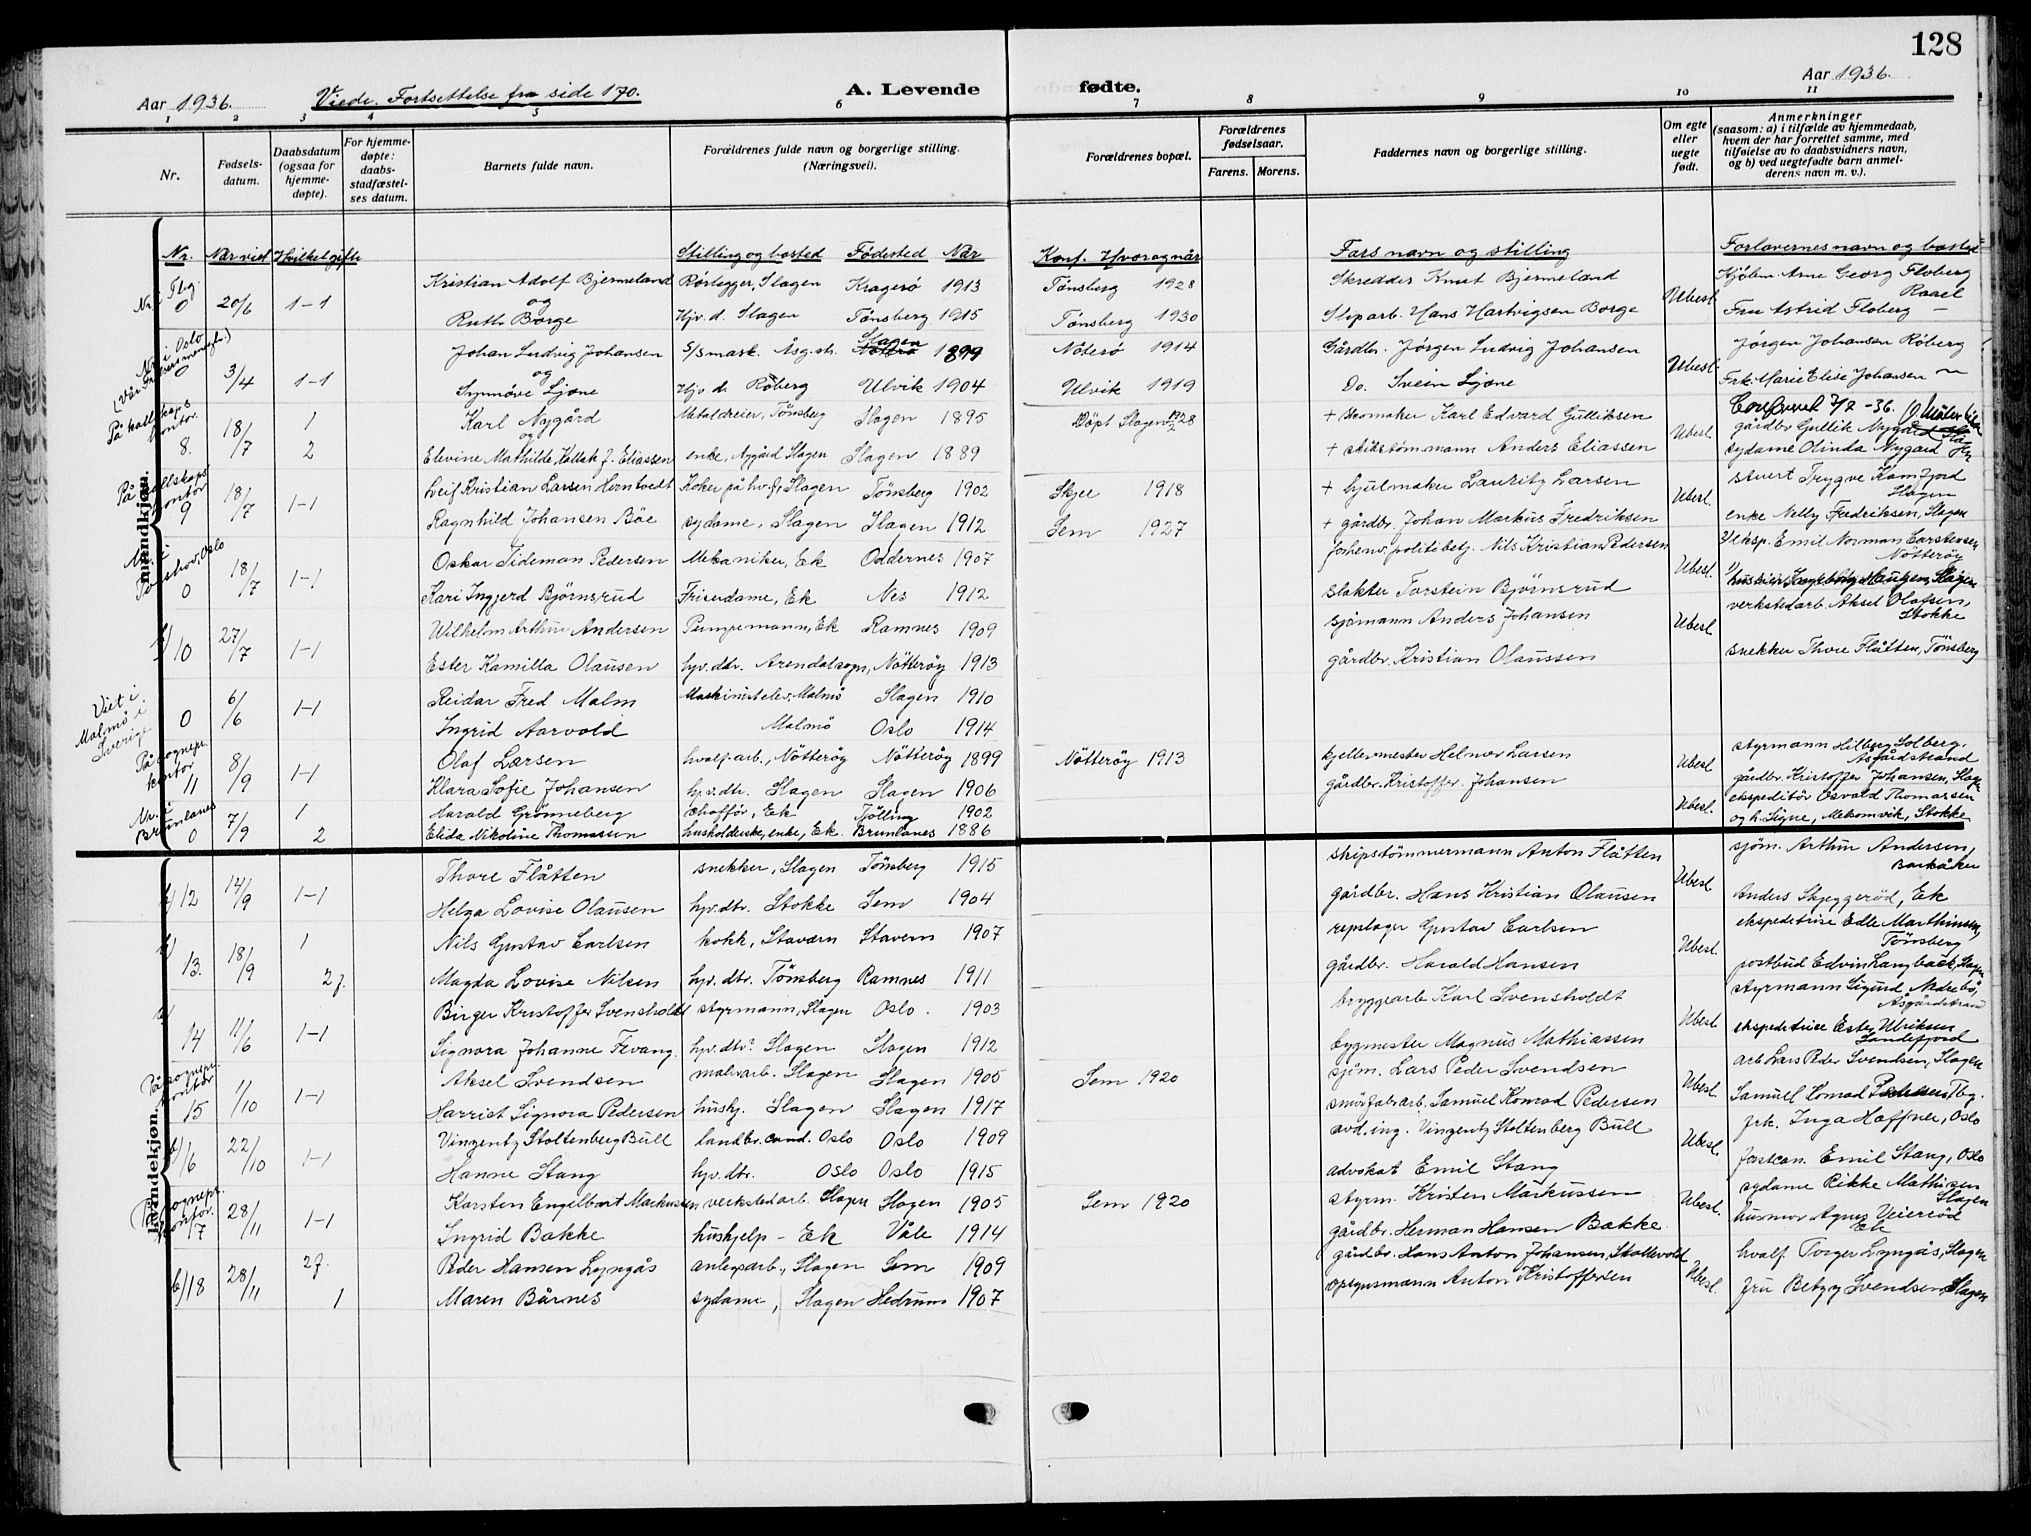 128
Aar 1936. Viede. Fortsettelse fra side 170. A. Levende fødte. Aar 1936.
1 2 3 4 5 6 7 8 9 10 11
Nr.
Fødsels-
datum.
Daabsdatum
(ogsaa for
hjemme-
døpte).
For hjemme-
døpte:
daabs-
stadfæstel-
ses datum.
Barnets fulde navn.
Forældrenes fulde navn og borgerlige stilling.
(Næringsvei).
Forældrenes bopæl.
Forældrenes
fødselsaar.
Farens. Morens.
Faddernes navn og borgerlige stilling.
Om egte
eller
uegte
født.
Anmerkninger
(saasom: a) i tilfælde av hjemmedaab,
hvem der har forrettet samme, med
tilføielse av to daabsvidners navn,
og b) ved uegtefødte barn anmel-
derens navn m. v.).
mandkjøn.
kvindekjøn.
Nr. Nær viet Hvilket gifte Stilling og bosted Fødested Når Konf. Hvor og når Fars navn og stilling Forlovernes navn og bosted
Kristian Adolf Bjermeland Rørlegger, Slagen Kragerø 1913 Tønsberg 1928 Skredder Knut Bjermeland Kjøbm. Arne Georg Floberg
Nr. i Tbg. 0 20/6 1-1 og Ubesl. Raael
Ruth Borge Hjv. d. Slagen Tønsberg 1915 Tønsberg 1930 Sliparb. Hans Hartvigsen Borge Fru Astrid Floberg —
Johan Ludvig Johansen S/S mask. Åsg.str. Slagen 1899 Nøterø 1914 Gårdbr. Jørgen Ludvig Johansen Jørgen Johansen Røberg
Nr. i Oslo 0 3/4 1-1 og Ubesl.
Synnøve Ljone Hjv. d. Røberg Ulvik 1904 Ulvik 1919 Do. Svein Ljone Frk. Marie Elise Johansen —
Karl Nygård Metaldreier, Tønsberg Slagen 1895 Døpt Slagen + Skomaker Karl Edvard Gulliksen gårdbr Gullik Nygård
På kallskaps kontor. 8. 18/7 1 2 og Ubesl.
Elevine Mathilde Kallak f. Eliassen enke, Nygård Slagen Slagen 1889 + skibstømmann Anders Eliassen sydame Olinda Nygård
Leif Kristian Larsen Horntvedt Koker på hv.f, Slagen Tønsberg 1902 Skjee 1918 + hjulmaker Lauritz Larsen stuert Trygve Kamfjord
På kallskaps kontor 9 18/7 1-1 Ubesl. Slagen
Ragnhild Johansen Bøe sydame, Slagen Slagen 1912 Sem 1927 + gårdbr. Johan Markus Fredriksen enke Nelly Fredriksen, Slagen
Oskar Tideman Pedersen Mekaniker, Ek Oddernes 1907 forhenv. politibetj. Nils Kristian Pedersen Emil Norman Carstensen
0 18/7 1-1 Ubesl. Nøtterøy
Kari Ingjerd Bjørnsrud Friserdame, Ek Nes 1912 slakter Torstein Bjørnsrud Ingeborg Haugen, Slagen
Wilhelm Arthur Andersen Pumpemann, Ek Ramnes 1909 sjømann Anders Johansen verkstedarb. Aksel Olafsen,
10 27/7 1-1 Ubesl. Stokke
Ester Kamilla Olausen hjv. dtr. Arendalsogn, Nøtterøy 1913 gårdbr. Kristian Olaussen snekker Thore Flåtten, Tønsberg
Reidar Fred Malm Maskinistelev, Malmø Slagen 1910
Viet i Malmø i Sverige 0 6/6 1-1
Ingrid Aarvold Malmø Oslo 1914
Olaf Larsen hvalf.arb., Nøtterøy Nøtterøy 1899 Nøtterøy 1913 kjellermester Helmer Larsen styrmann Hilberg Solberg,
På sognepr. kontor 11 8/9 1-1 Ubesl. Åsgårdstrand
Klara Sofie Johansen hjv. dtr. Slagen Slagen 1906 gårdbr. Kristoffer Johansen gårdbr. Kristoffer Johansen, Slagen
Harald Grønneberg chaffør, Ek Tjølling 1902 ekspeditør Osvald Thomassen
Nr. i Brunlanes 0 7/9 1 2 Ubesl.
Elida Nikoline Thomassen husholderske, enke, Ek. Brunlanes 1886 og h. Signe, Melsomvik, Stokke
Thore Flåtten snekker, Slagen Tønsberg 1915 skipstømmermann Anton Flåtten sjøm. Arthur Andersen,
12 14/9 1-1 Ubesl. Barkåker
Helga Lovise Olausen hjv. dtr. Stokke Sem 1904 gårdbr. Hans Kristian Olausen Anders Skjeggerød, Ek
Nils Gustav Carlsen kokk, Stavern Stavern 1907 repslager Gustav Carlsen ekspeditrise Edle Marthinsen,
13. 18/9 1 2 f. Ubesl. Tønsberg
Magda Lovise Nilsen hjv. dtr. Tønsberg Ramnes 1911 gårdbr. Harald Hansen postbud Edvin Langbakk, Slagen
Birger Kristoffer Svensholdt styrmann, Slagen Oslo. 1903 bryggearb Karl Svensholdt styrmann Sigurd Nedrebø,
14 11/6 1-1 Ubesl. Åsgårdstrand
Signora Johanne Fevang. hjv. dtr. Slagen Slagen 1912 bygmester Magnus Mathiassen ekspeditrise Ester Ulriksen Sandefjord
Aksel Svendsen malerarb. Slagen Slagen 1905 Sem 1920 sjøm. Lars Peder Svendsen arb Lars Peder Svendsen, Slagen
På sognepr. kontor 15 1/10 1-1 Ubesl.
Harriet Signora Pedersen hushj. Slagen Slagen 1917 smørfabarb. Samuel Konrad Pedersen Samuel Konrad Pedersen Tbg.
Vinzentz Stoltenberg Bull landbr. cand. Oslo Oslo 1909 avd. ing. Vinzentz Stoltenberg Bull frk. Inga Haffner, Oslo
16 22/10 1-1 Ubesl.
Hanne Stang hjv. dtr. Oslo Oslo 1915 advokat Emil Stang forstcan. Emil Stang, Oslo
Karsten Engelbart Markussen verkstedarb. Slagen Slagen 1905 Sem 1920 styrm. Kristen Markussen sydame Rikke Mathisen Slagen
På sognepr. kontor. 17 28/11 1-1 Ubesl.
Ingrid Bakke hushjelp - Ek Våle 1914 gårdbr. Herman Hansen Bakke husmor Agnes Veierød Ek
Peder Hansen Lyngås anleggsarb., Slagen Sem 1909 gårdbr. Hans Anton Johansen, Skallevold hvalf. Torger Lyngås, Slagen
b/18 28/11 2 f. 1 Ubesl.
Maren Bårnes sydame, Slagen Hedrum 1907 opsynsmann Anton Kristoffersen Fru Betzy Svendsen, Slagen